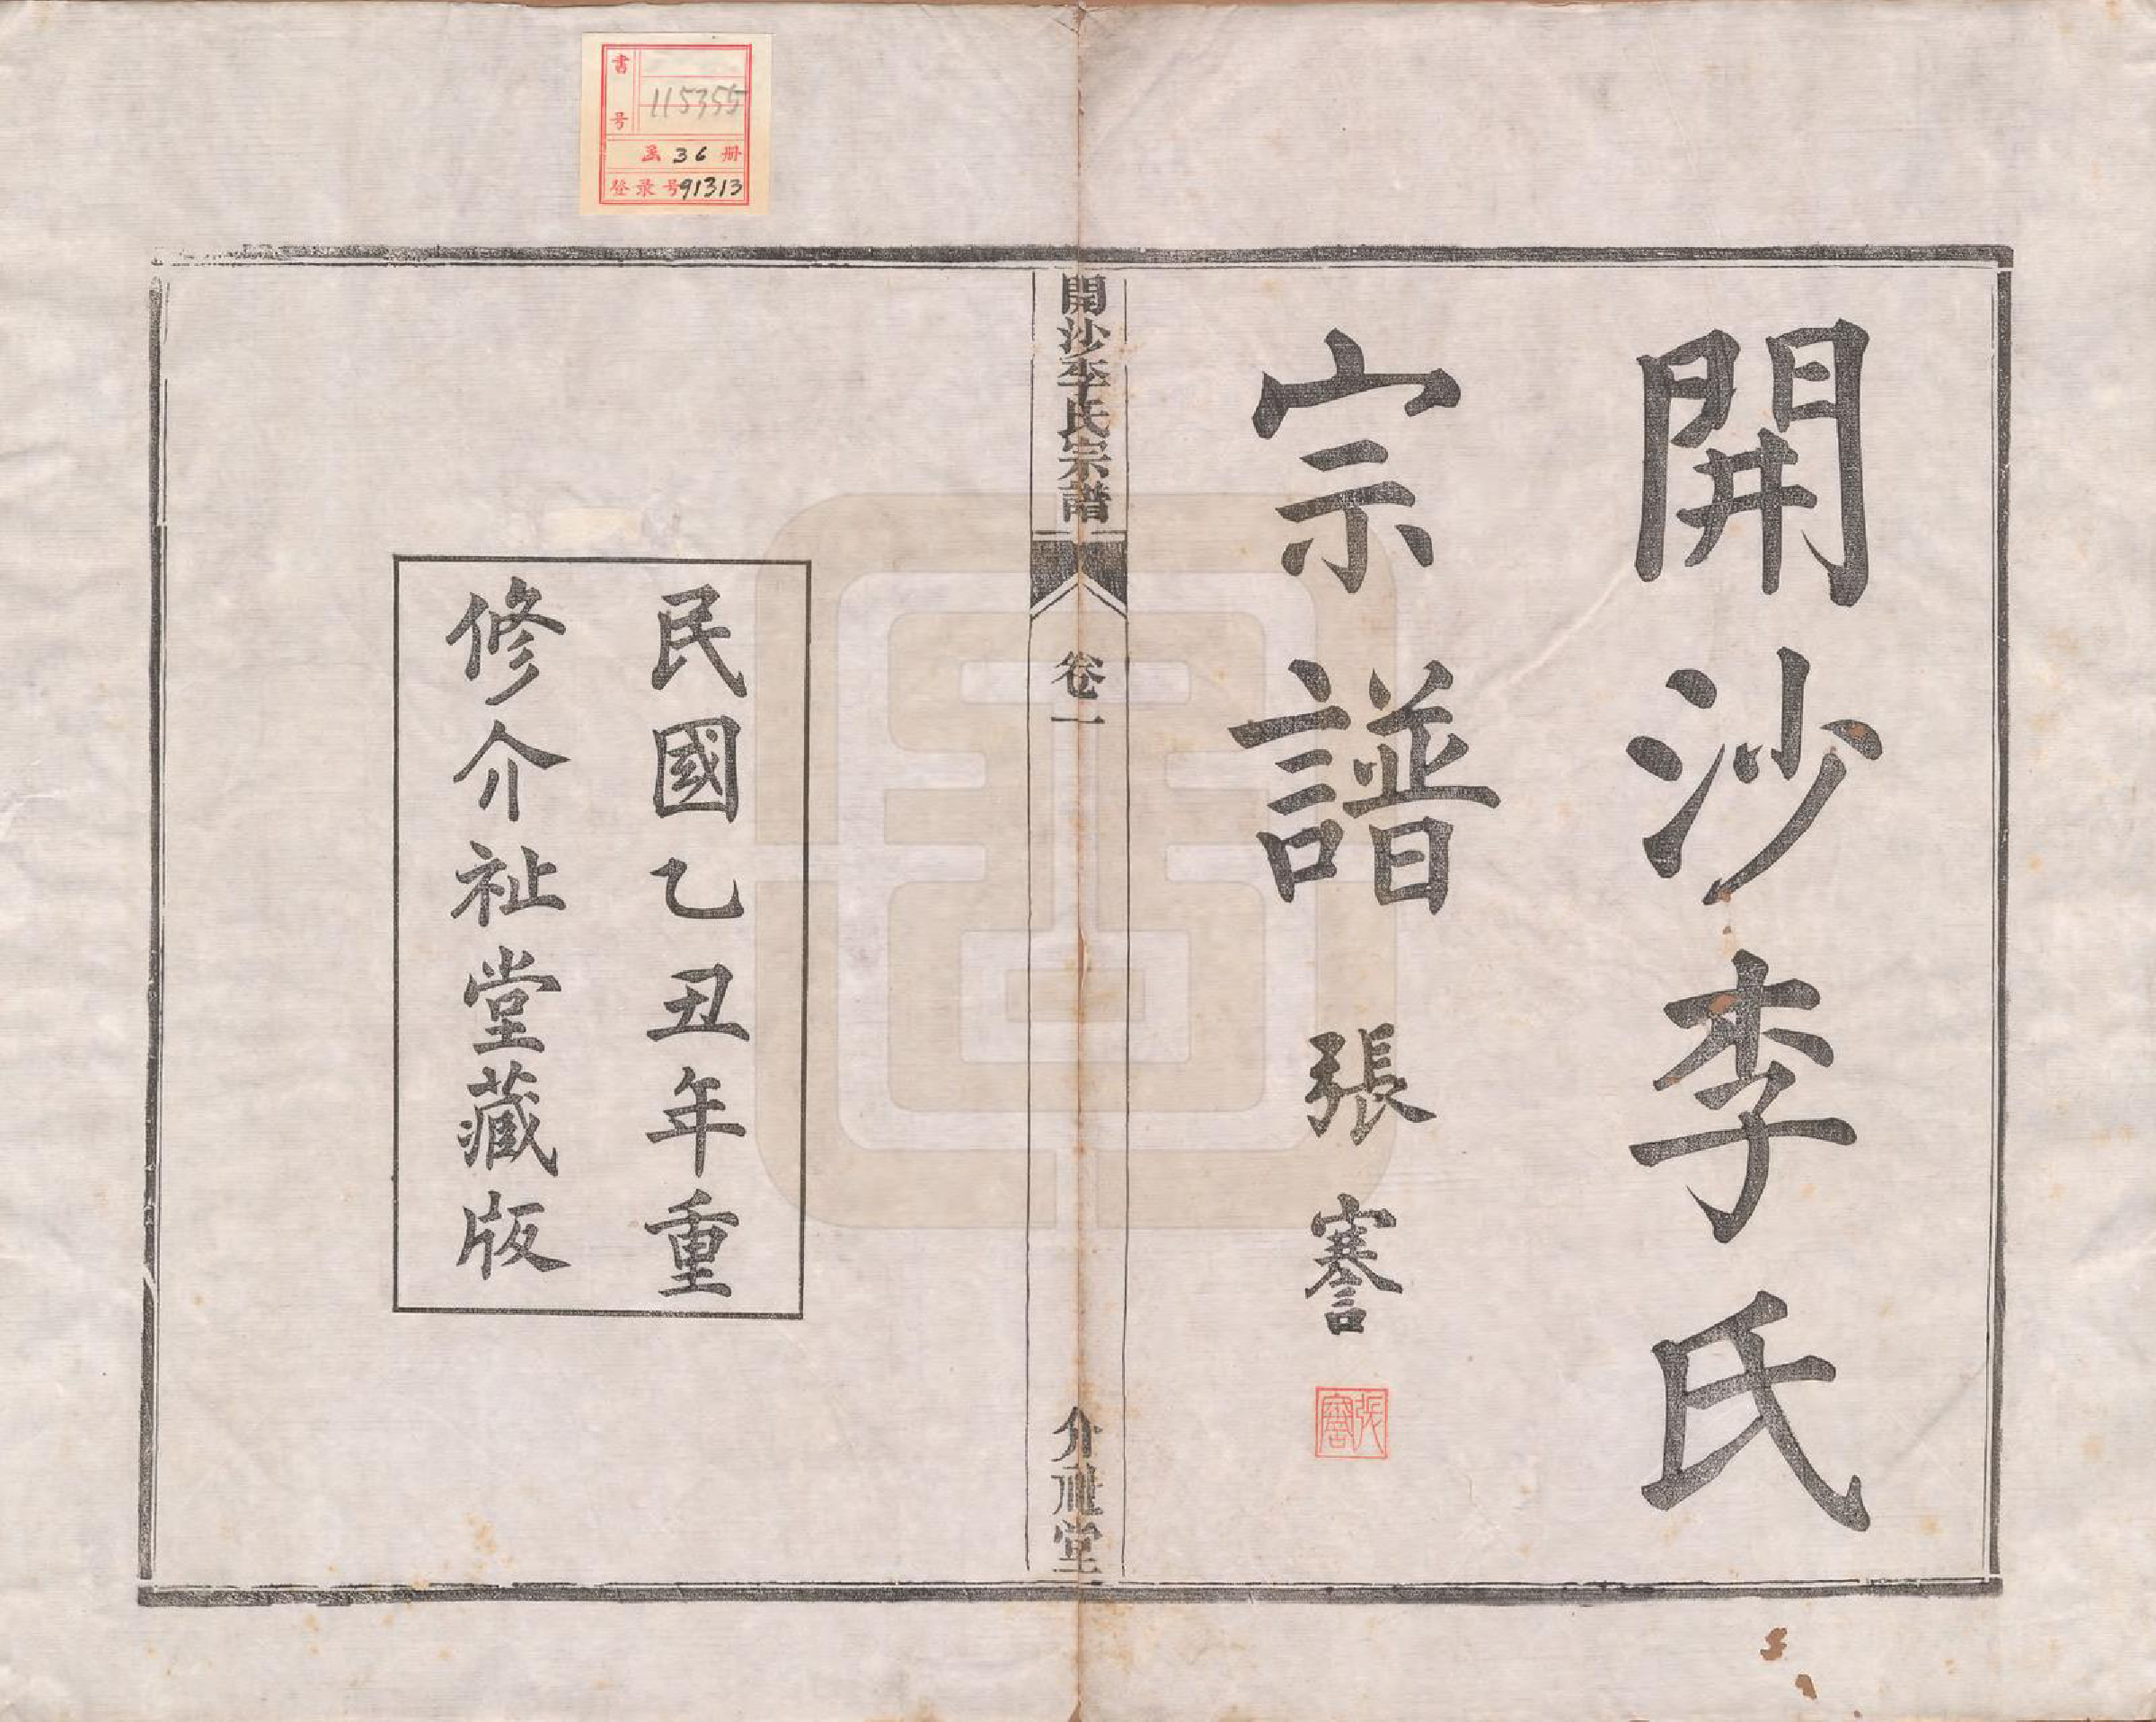 開沙李氏
宗譜
張謇
張謇
開沙李氏宗譜
卷一
介祉堂
民國乙丑年重
修介祉堂藏版
書号 115355
函 36 册
登录号 91313